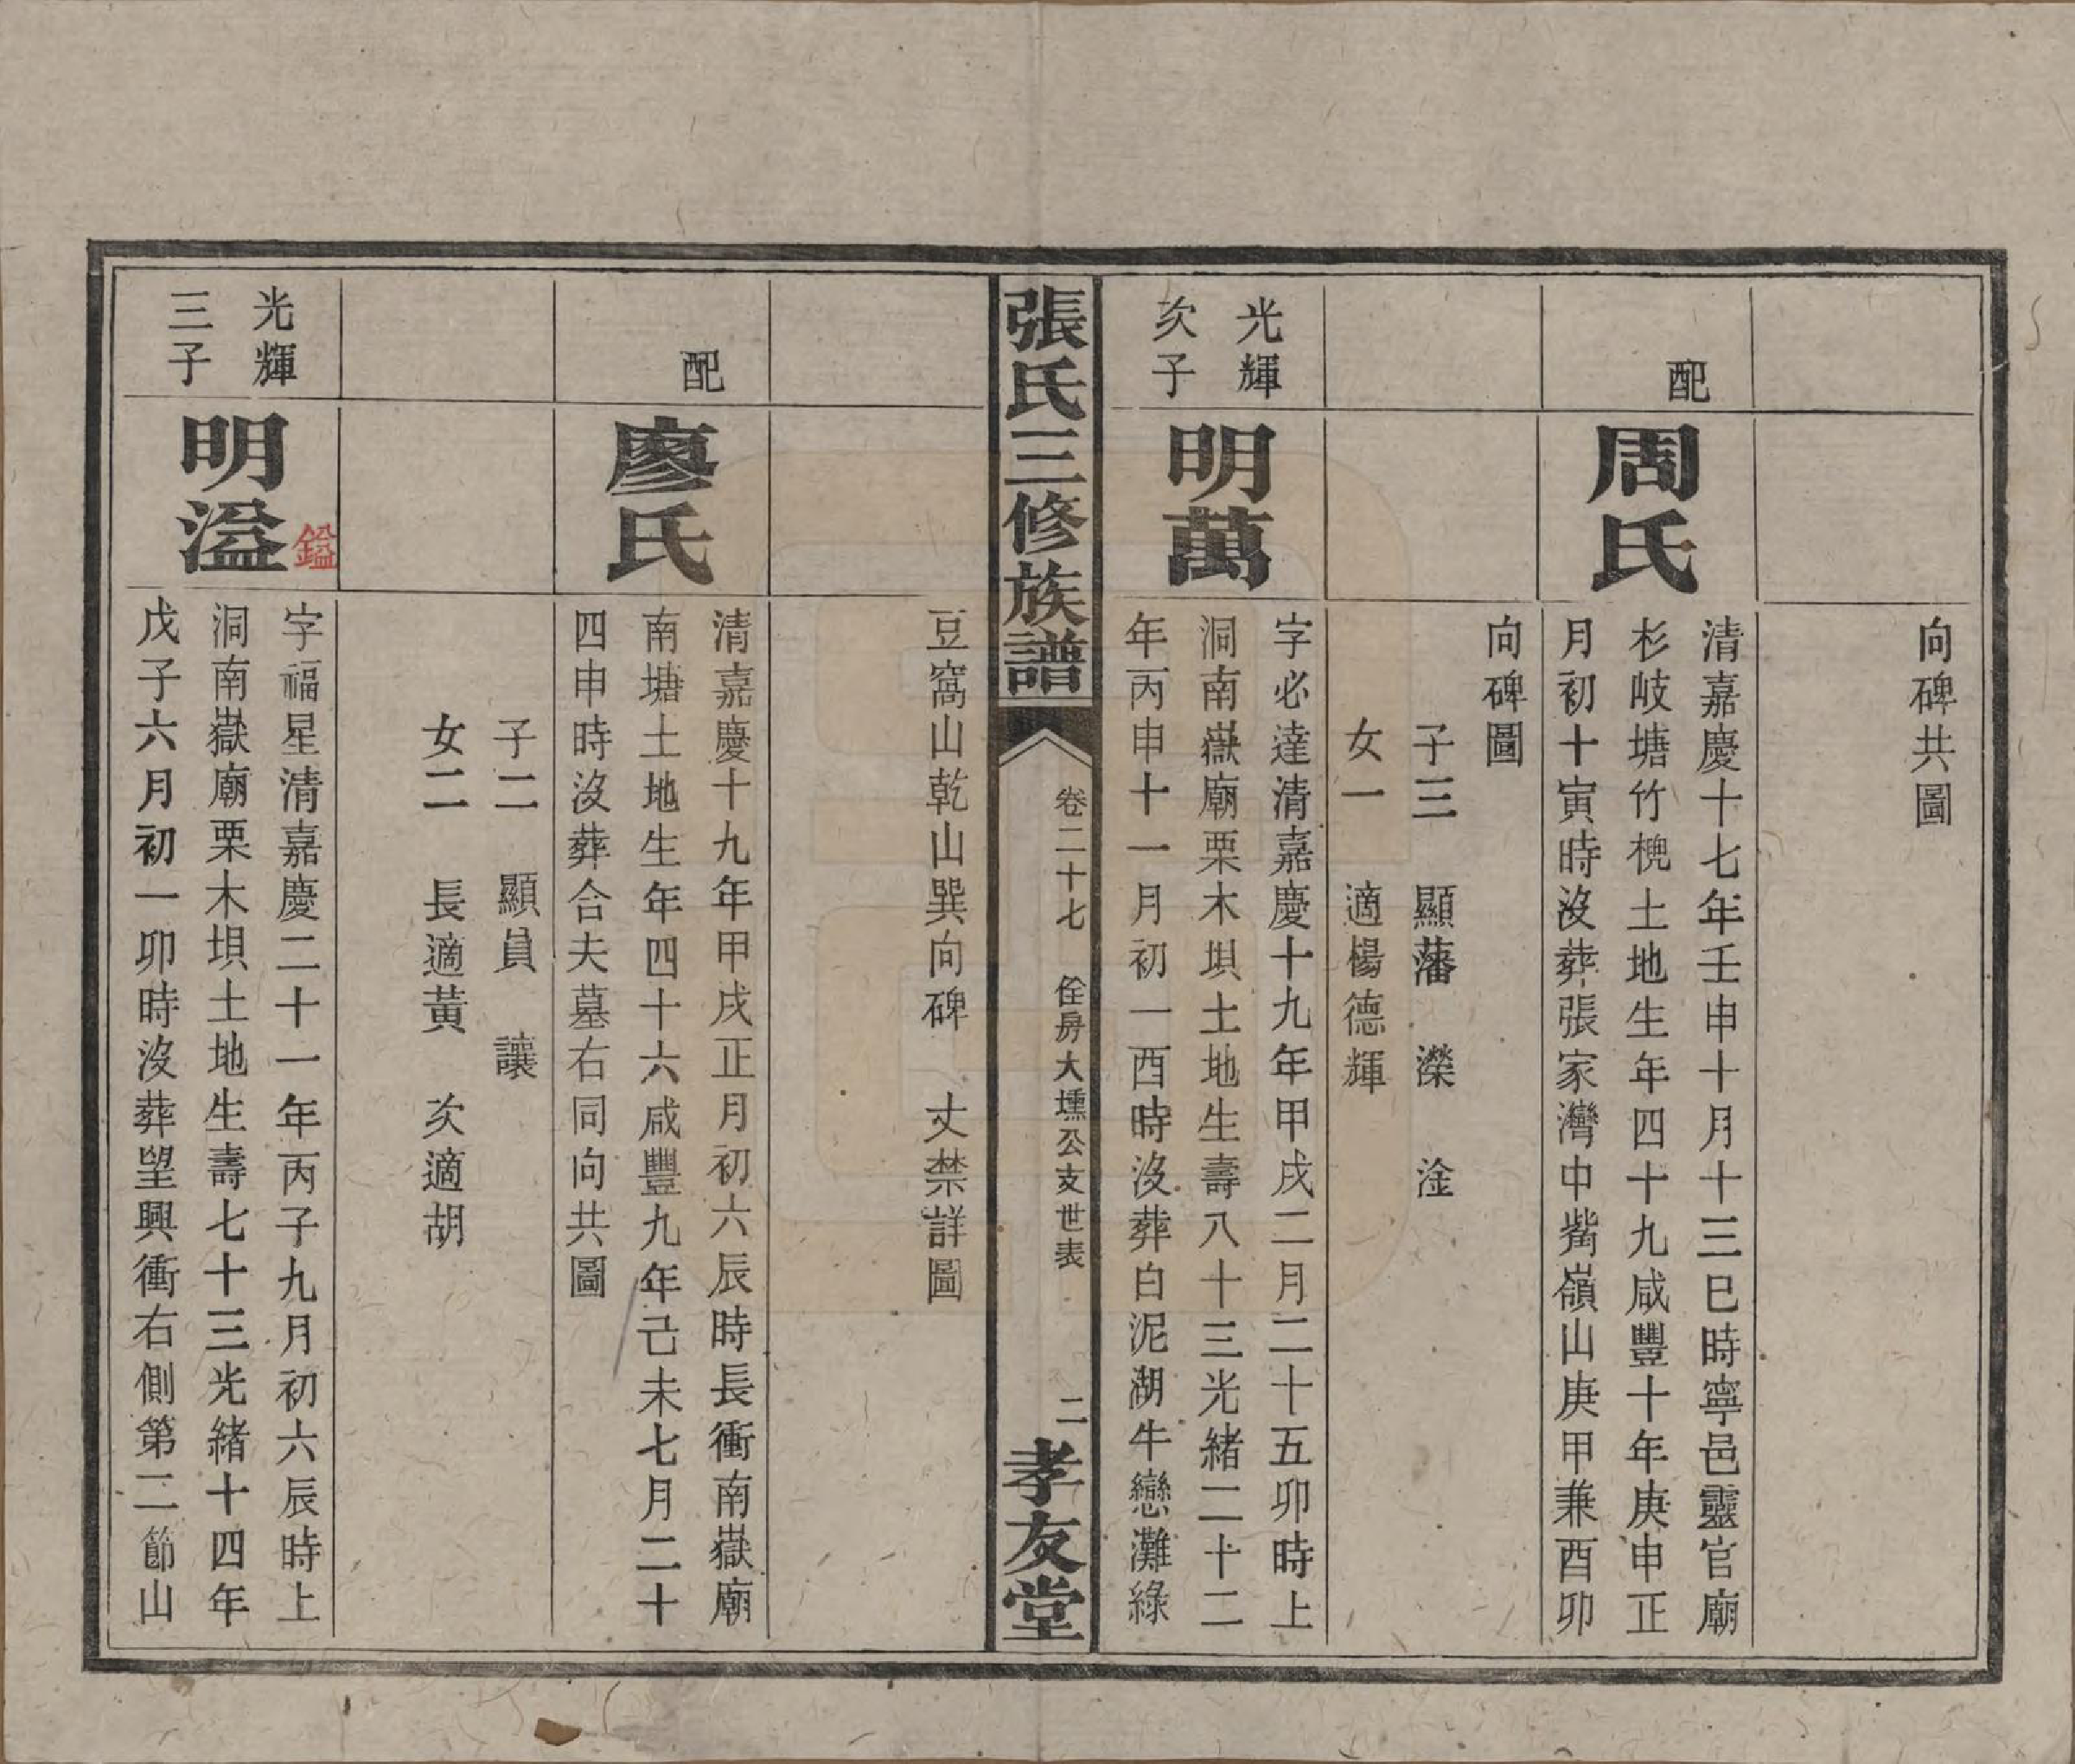 向碑共圖
配
周氏
清嘉慶十七年壬申十月十三巳時寧邑靈官廟
杉岐塘竹𣏕土地生年四十九咸豐十年庚申正
月初十寅時沒葬張家灣中嶺山庚甲兼酉卯
向碑圖
子三　顯藩　濚　淦
女一　適楊德輝
光輝
次子
明萬
字必達清嘉慶十九年甲戌二月二十五卯時上
洞南嶽廟栗木垻土地生壽八十三光緒二十二
年丙申十一月初一酉時沒葬白泥湖牛戀灘綠
張氏三修族譜
卷二十七　佺房大壎公支世表
二
孝友堂
豆窩山乾山巽向碑　丈禁詳圖
配
廖氏
清嘉慶十九年甲戌正月初六辰時長衝南嶽廟
南塘土地生年四十六咸豐九年己未七月二十
四申時沒葬合夫墓右同向共圖
子二　顯員　讓
女二　長適黃　次適胡
光輝
三子
明溢
鎰
字福星清嘉慶二十一年丙子九月初六辰時上
洞南嶽廟栗木垻土地生壽七十三光緒十四年
戊子六月初一卯時沒葬望興衝右側第二節山